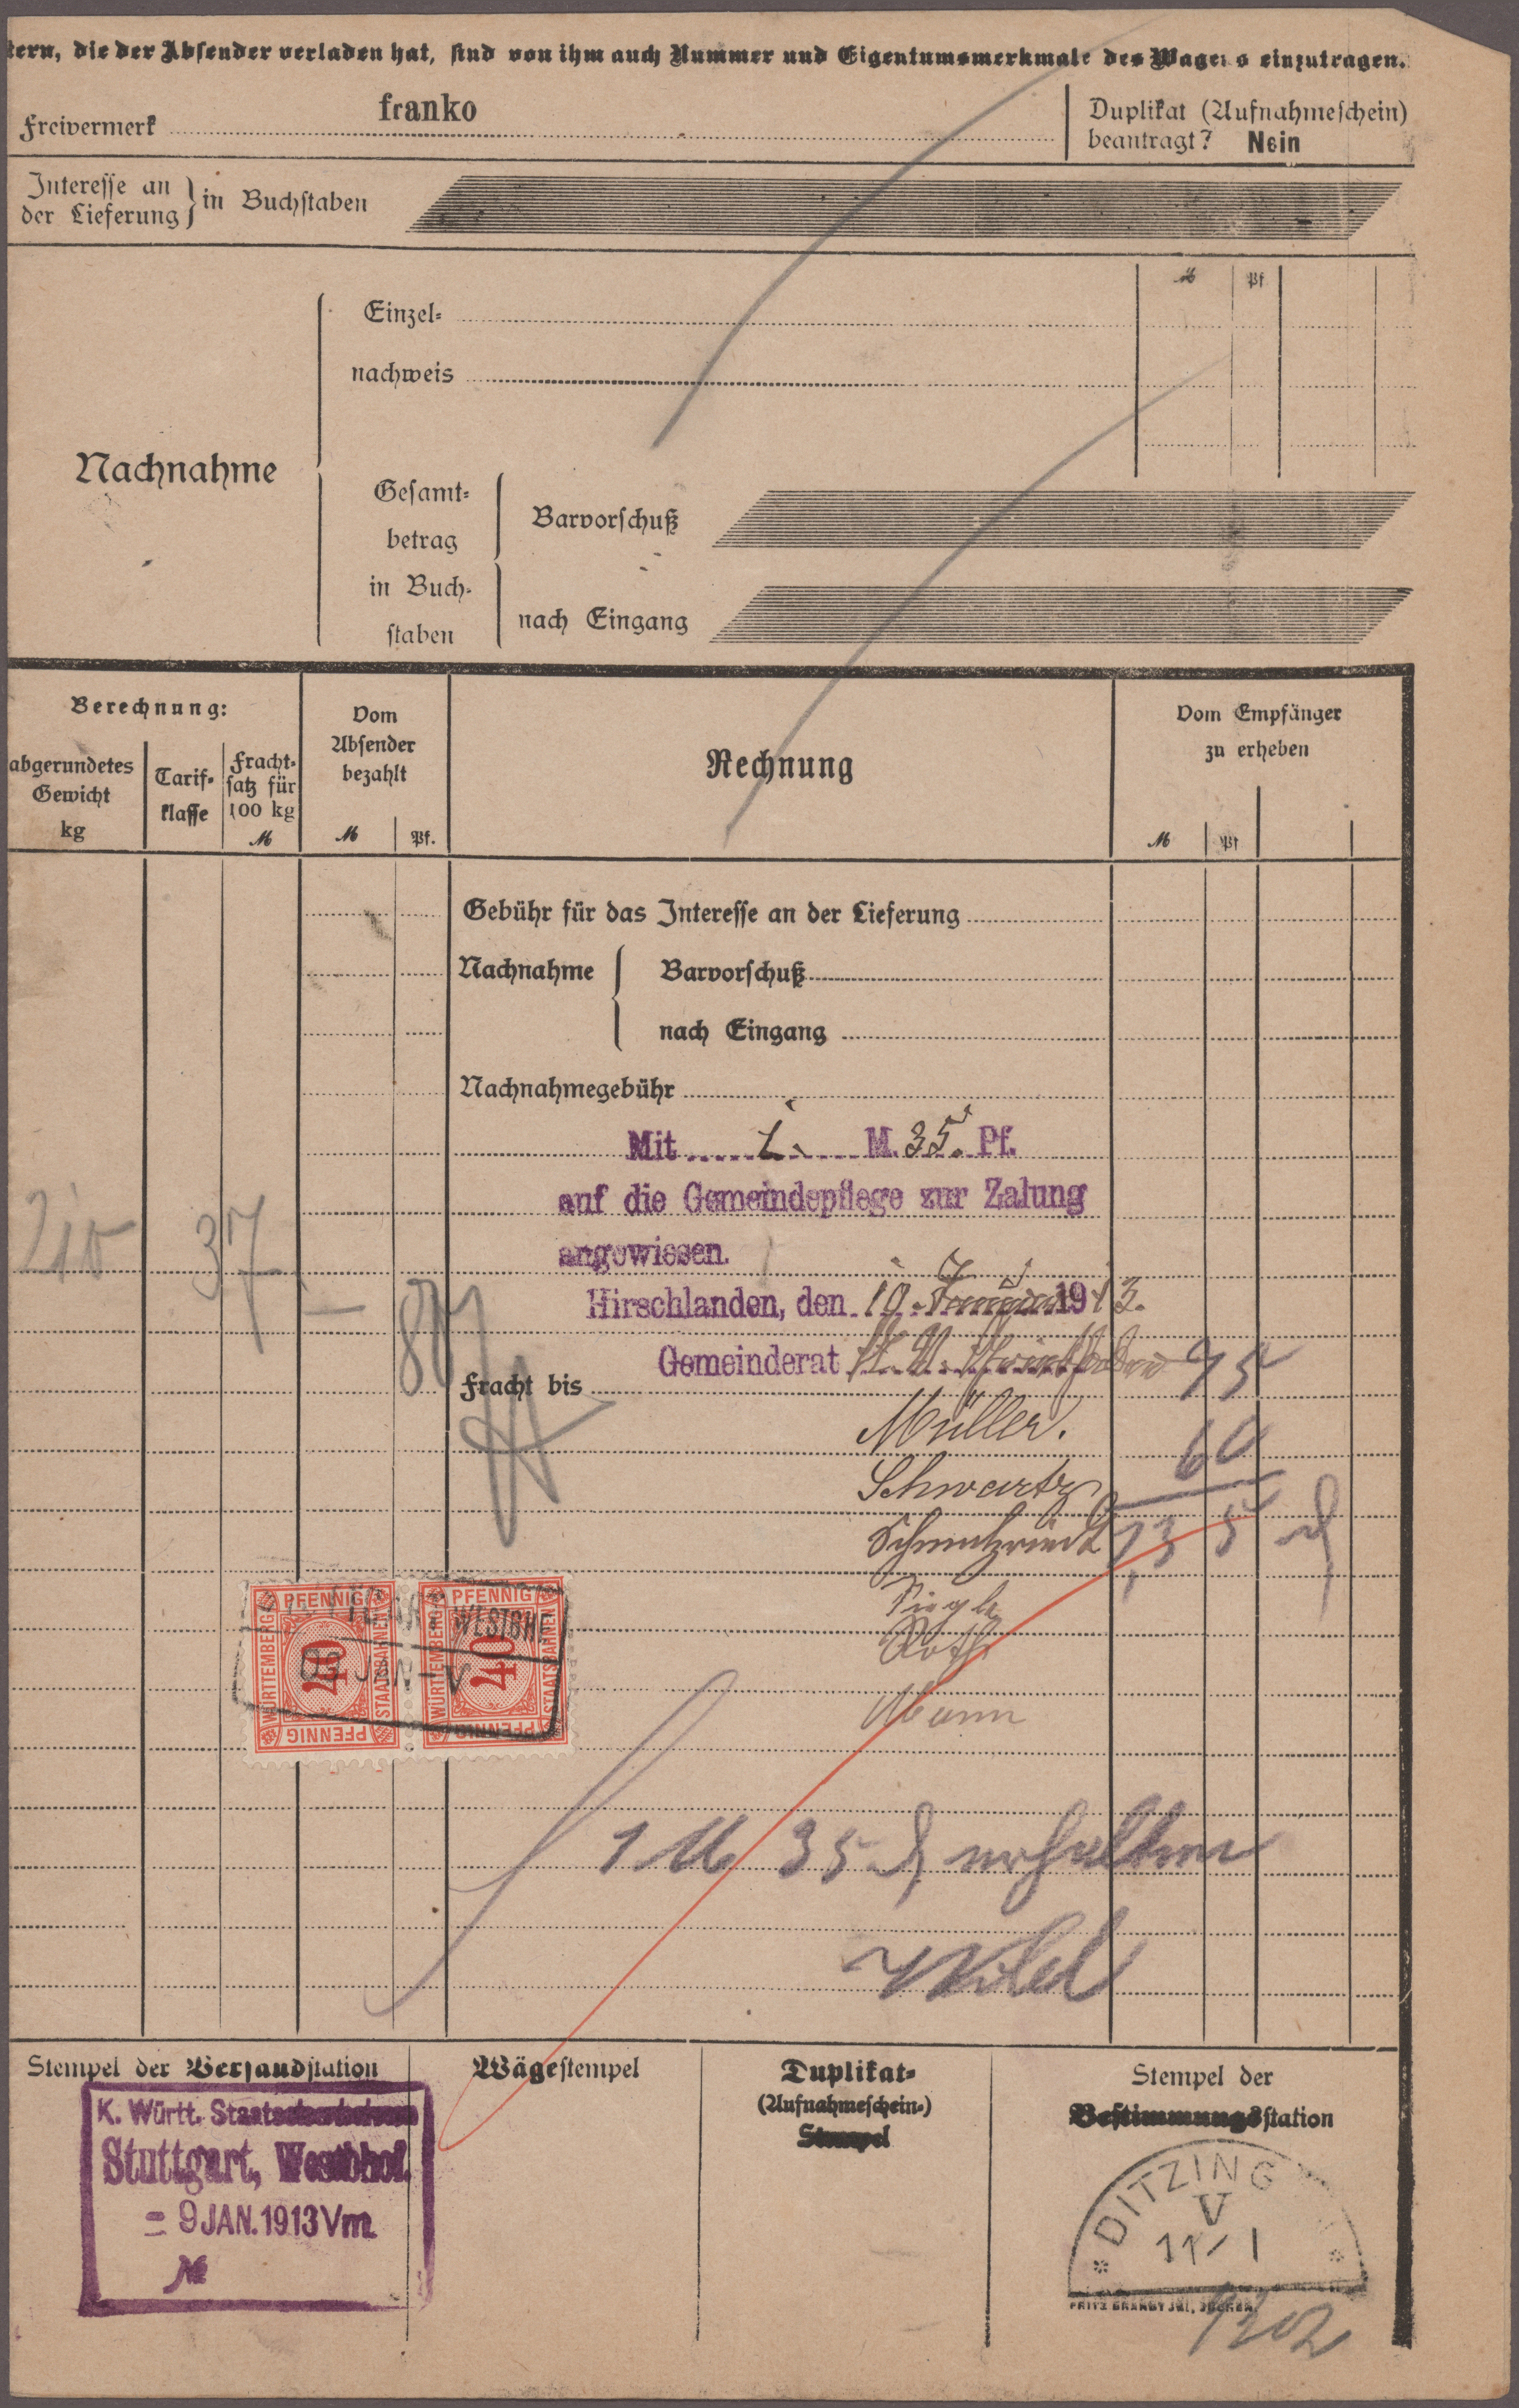 tern, die der Absender verladen hat, sind von ihm auch Nummer und Eigentumsmerkmale des Wagens einzutragen.
Freivermerk franko
Duplikat (Aufnahmeschein)
beantragt? Nein
Interesse an
der Lieferung } in Buchstaben
M Pf
Einzel-
nachweis
Nachnahme
Gesamt-
betrag
in Buch-
staben
Barvorschuß
nach Eingang
Berechnung:
abgerundetes
Gewicht
kg
Tarif-
klasse
Fracht-
satz für
100 kg
M
Vom
Absender
bezahlt
M Pf.
Rechnung
Vom Empfänger
zu erheben
M Pf
Gebühr für das Interesse an der Lieferung
Nachnahme { Barvorschuß
nach Eingang
Nachnahmegebühr
Mit 1. M. 35. Pf.
auf die Gemeindepflege zur Zalung
angewiesen.
210 37 – 80
Hirschlanden, den 10. Januar 1913.
Gemeinderat
Fracht bis 75
Müller. 60
Schwartz
1,35
Siegle
Roth
PFENNIG
WÜRTTEMBERG 40 STAATSBAHNEN
PFENNIG
PFENNIG
WÜRTTEMBERG 40 STAATSBAHNEN
PFENNIG
WESTBHF
09 JAN - V
1 M 35 erhalten
Stempel der Versandstation
K. Württ.
Stuttgart, Westbhof.
= 9 JAN. 1913 Vm
№
Wägestempel
Duplikat-
(Aufnahmeschein-)
Stempel
Stempel der
Bestimmungsstation
DITZING
V
11/1
1302